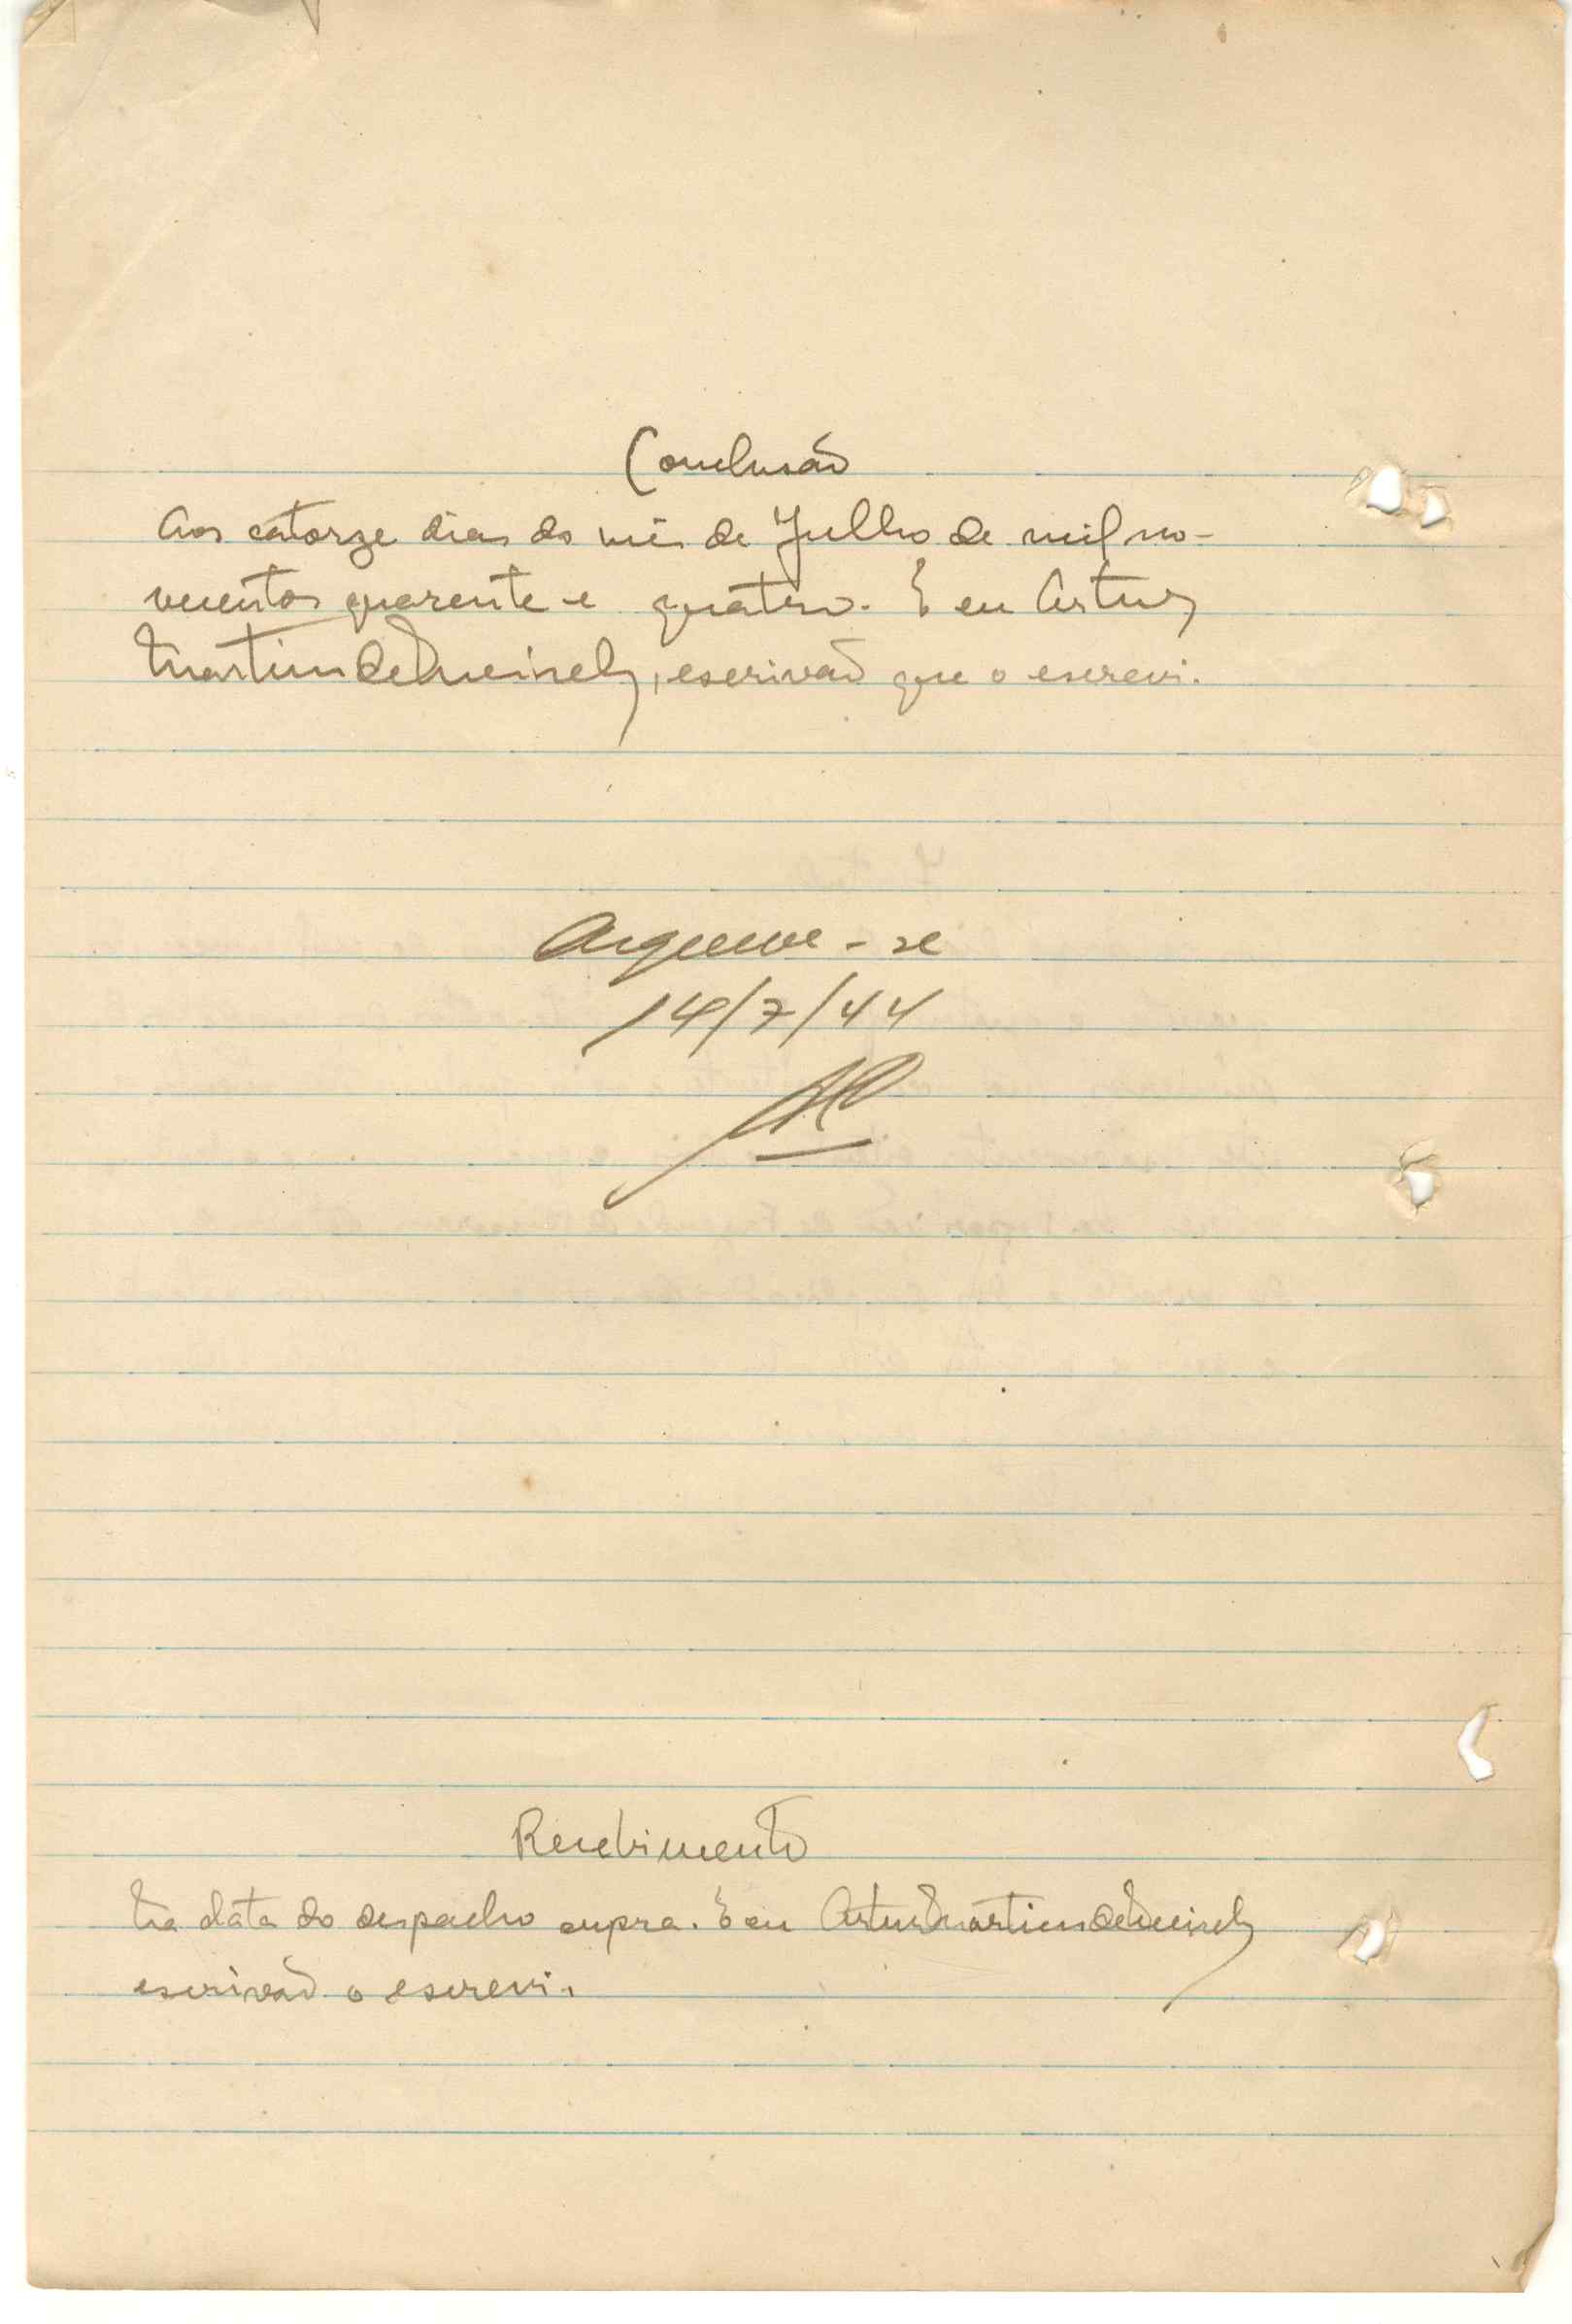 Conclusão
Aos catorze dias do mês de Julho de mil no-
vecentos quarenta e quatro. E eu Artur
Martins de, escrivão que o escrevi.
Arquive-se
14/7/44
Recebimento
Na data do despacho supra. E eu Artur Martins de
escrivão o escrevi.